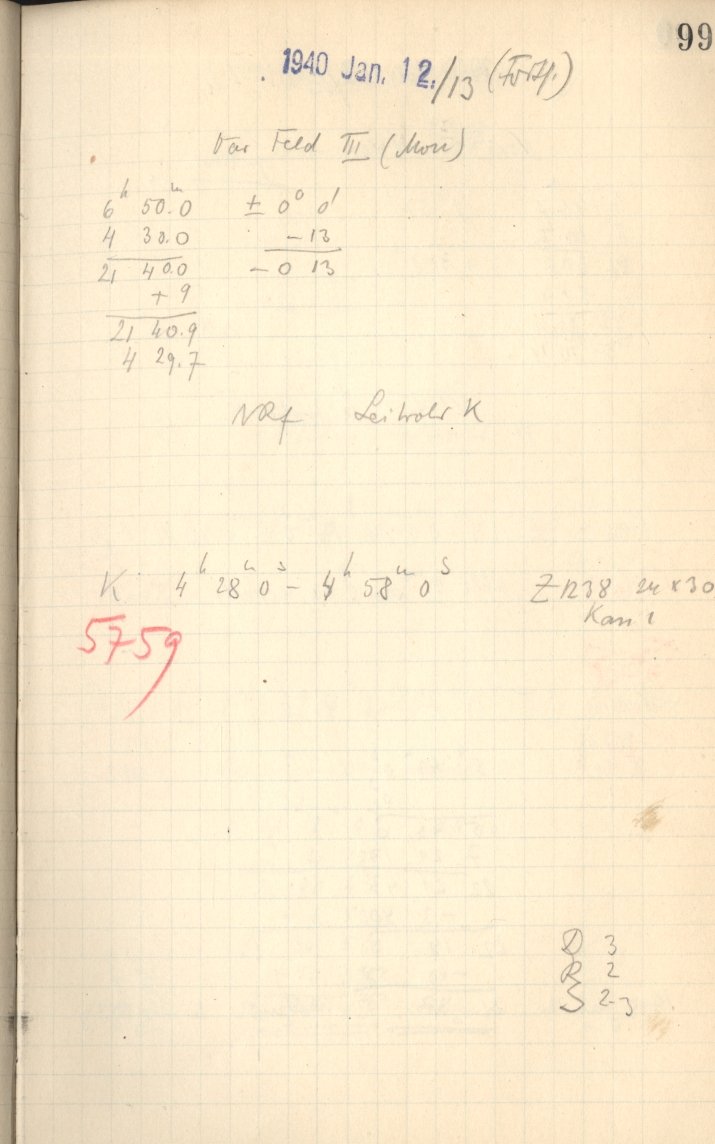 99
1940 Jan. 12./13 (Forts.)
Var Feld III (Mon)
6ʰ 50.ᵐ0 ± 0° 0'
4 30.0 - 13
21 40.0 - 0 13
+ 9
21 40.9
4 29.7
NRf Leitrohr K
K 4ʰ 28ᵐ 0ˢ - 4ʰ 58ᵐ 0ˢ Z 1238 24 x 30
Kass 1
5759
D 3
R 2
S 2-3